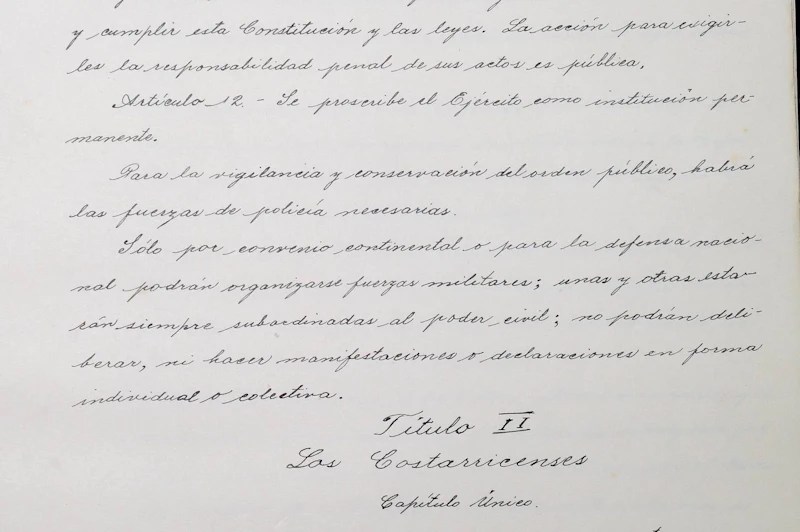 y cumplir esta Constitución y las leyes. La acción para exigir-
les la responsabilidad penal de sus actos es pública.
Artículo 12. - Se proscribe el Ejército como institución per-
manente.
Para la vigilancia y conservación del orden público, habrá
las fuerzas de policía necesarias.
Sólo por convenio continental o para la defensa nacio-
nal podrán organizarse fuerzas militares; unas y otras esta-
rán siempre subordinadas al poder civil; no podrán deli-
berar, ni hacer manifestaciones o declaraciones en forma
individual o colectiva.
Título II
Los Costarricenses
Capítulo Único.